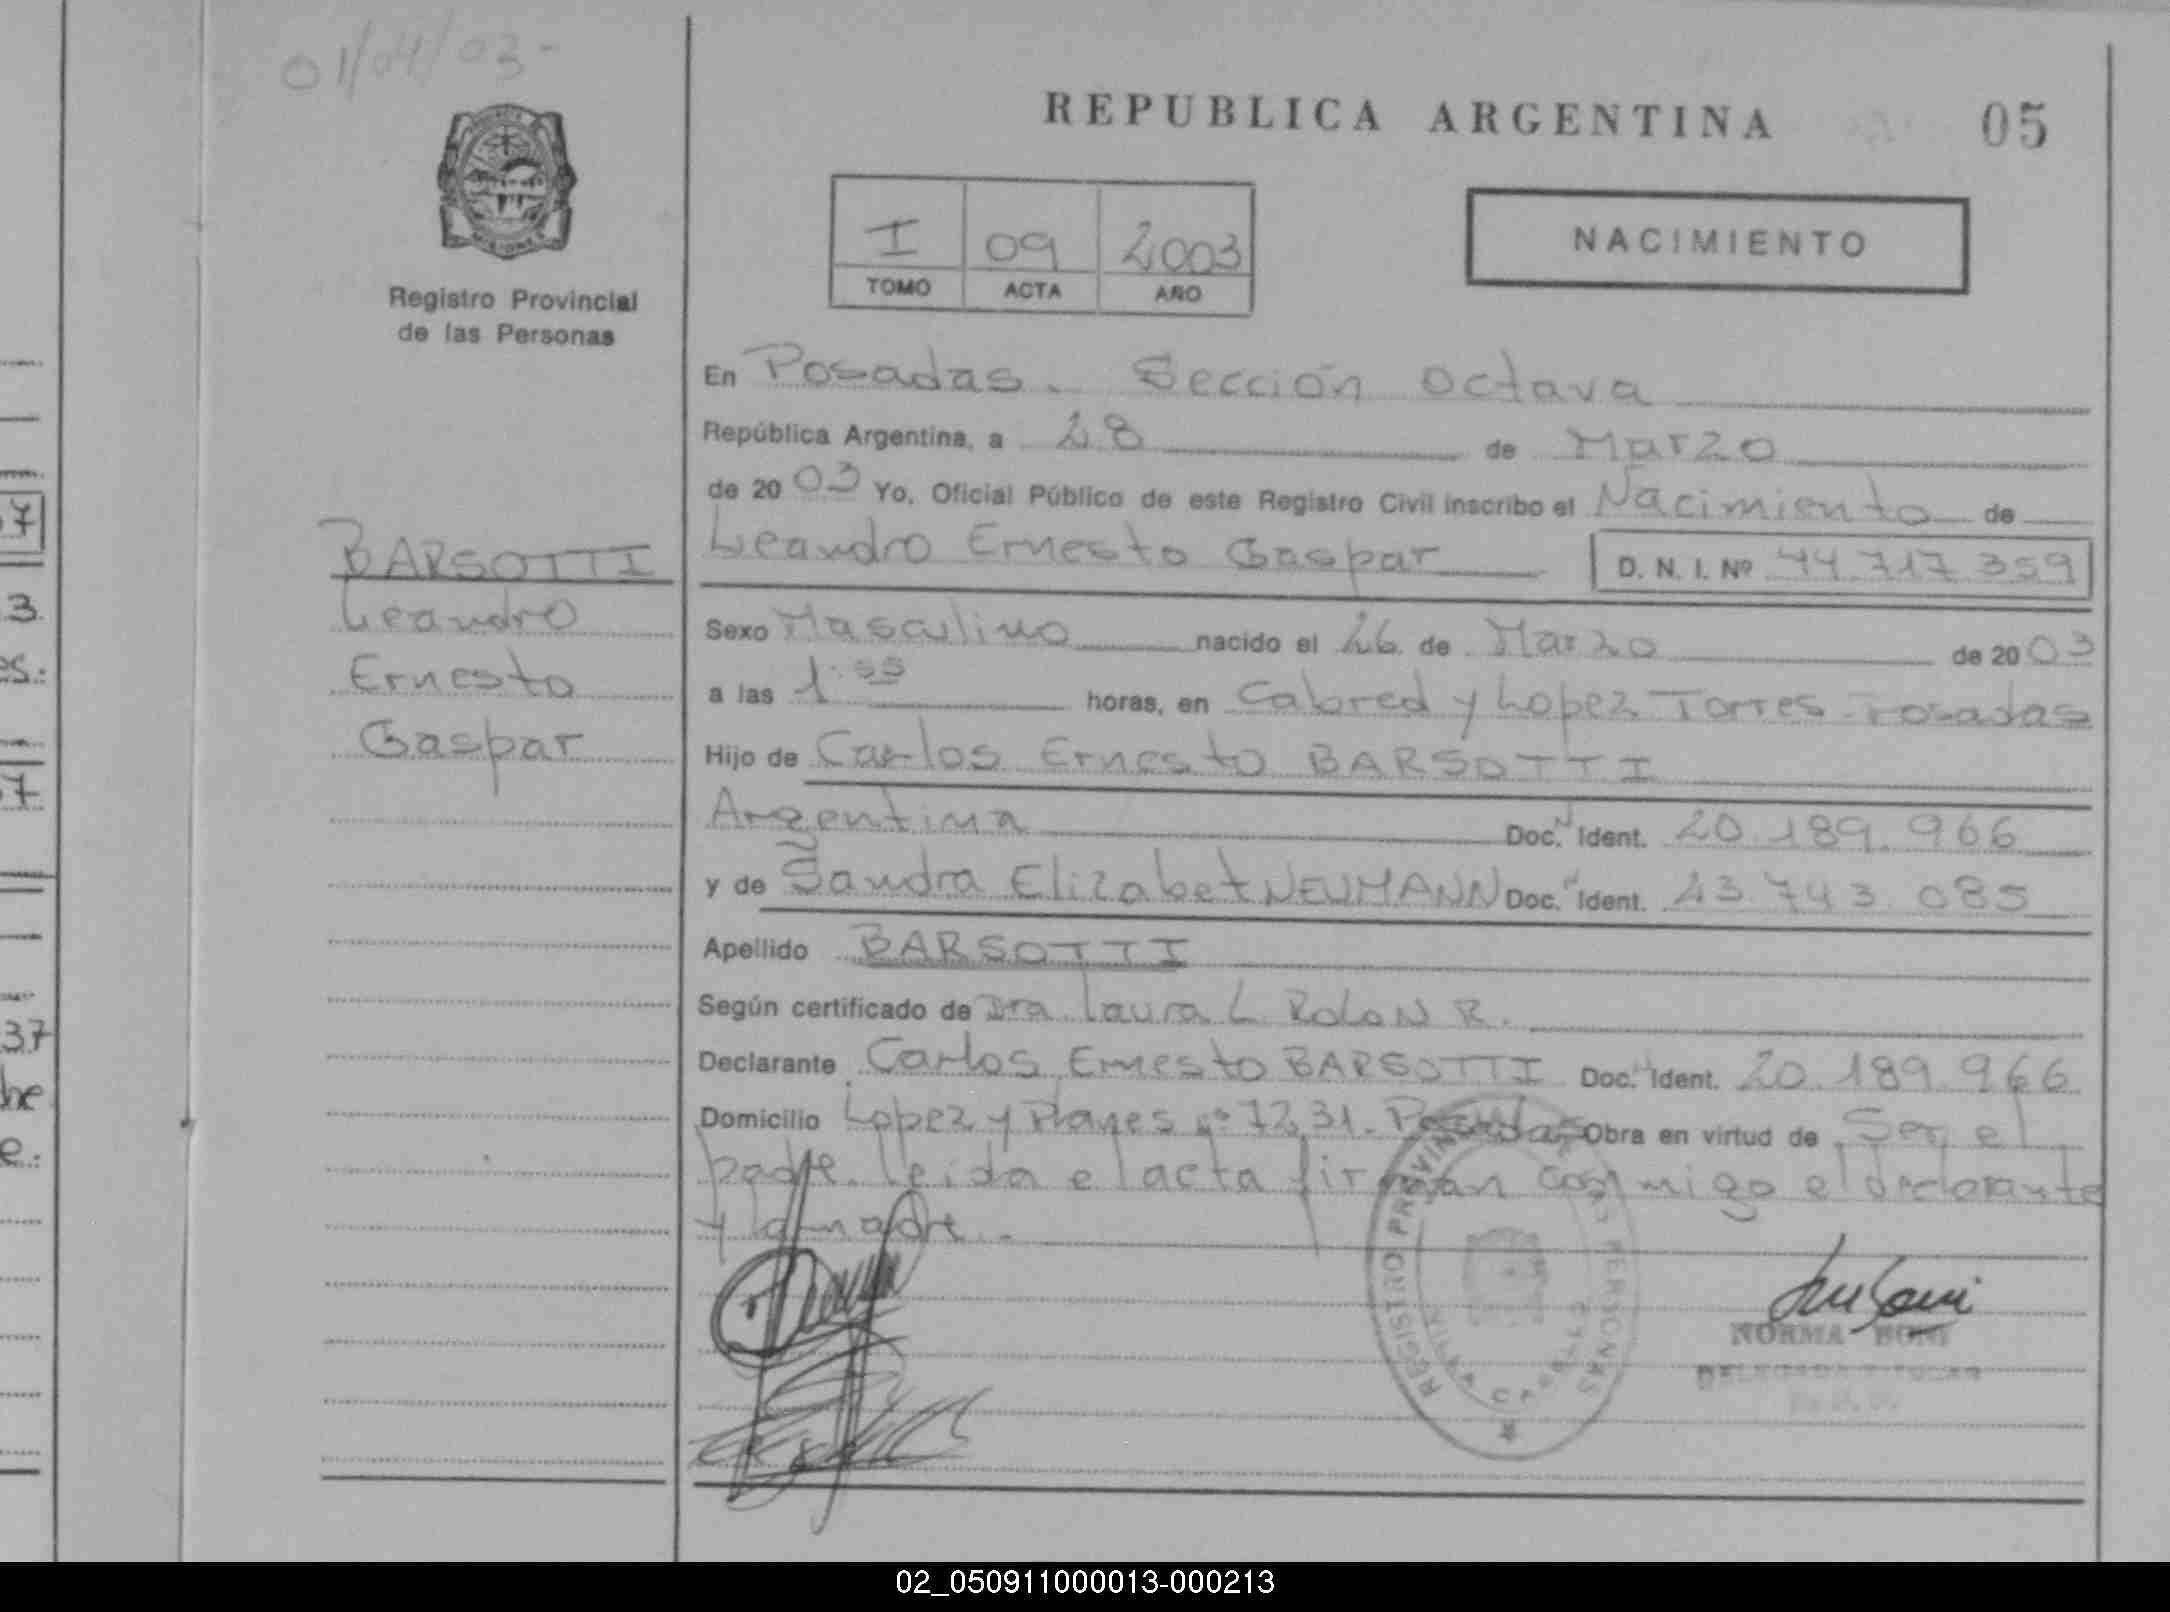 01/04/03-
REPUBLICA ARGENTINA
05
MISIONES
Registro Provincial
de las Personas
I 09 2003
TOMO ACTA AÑO
NACIMIENTO
En Posadas. Sección Octava
República Argentina, a 28 de Marzo
de 2003 Yo, Oficial Público de este Registro Civil inscribo el Nacimiento de
Leandro Ernesto Gaspar D. N. I. Nº 44.717.359
BARSOTTI
Leandro
Ernesto
Gaspar
Sexo Masculino nacido el 26 de Marzo de 2003
a las 1:55 horas, en Cabred y Lopez Torres-Posadas
Hijo de Carlos Ernesto BARSOTTI
Argentina Doc. Ident. 20.189.966
y de Sandra Elizabet NEUMANN Doc. Ident. 23.743.085
Apellido BARSOTTI
Según certificado de Dra. Laura L. Rolon R.
Declarante Carlos Ernesto BARSOTTI Doc. Ident. 20.189.966
Domicilio Lopez y Planes nº 7231. Posadas Obra en virtud de Ser el
padre. Leida el acta firman conmigo el declarante
y la madre.-
REGISTRO PROVINCIAL DE LAS PERSONAS
VILLA CABELLO
NORMA BONI
DELEGADA TITULAR
37
3
es:
7
37
he
e:
02_050911000013-000213